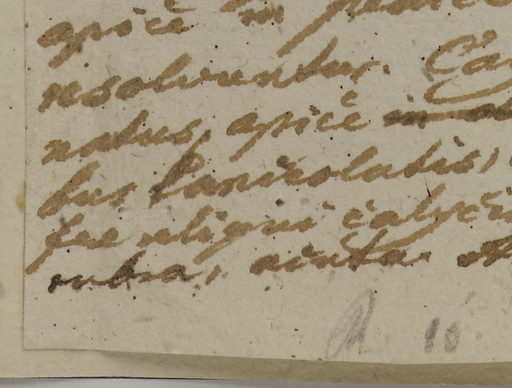 apice in
resolvuntur. Ca
natus, apice in
bus lanceolatis,
fere aliqui calyci
rubra, acuta.
R. 10